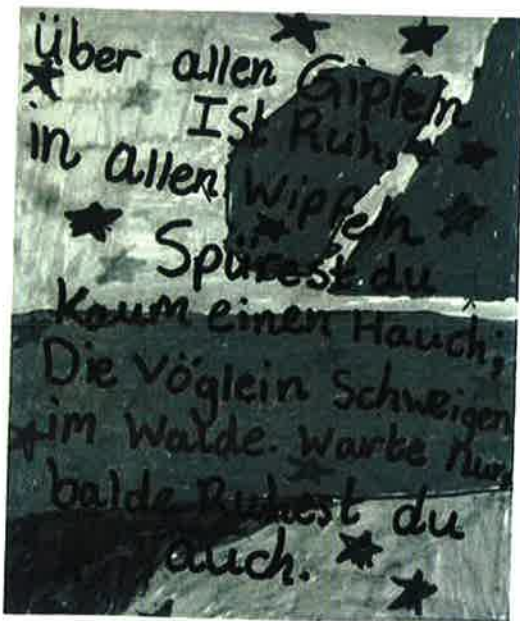 über allen Gipfeln
Ist Ruh,
in allen Wipfeln
Spürest du
Kaum einen Hauch;
Die Vöglein Schweigen
im Walde. Warte nur,
balde Ruhest du
auch.